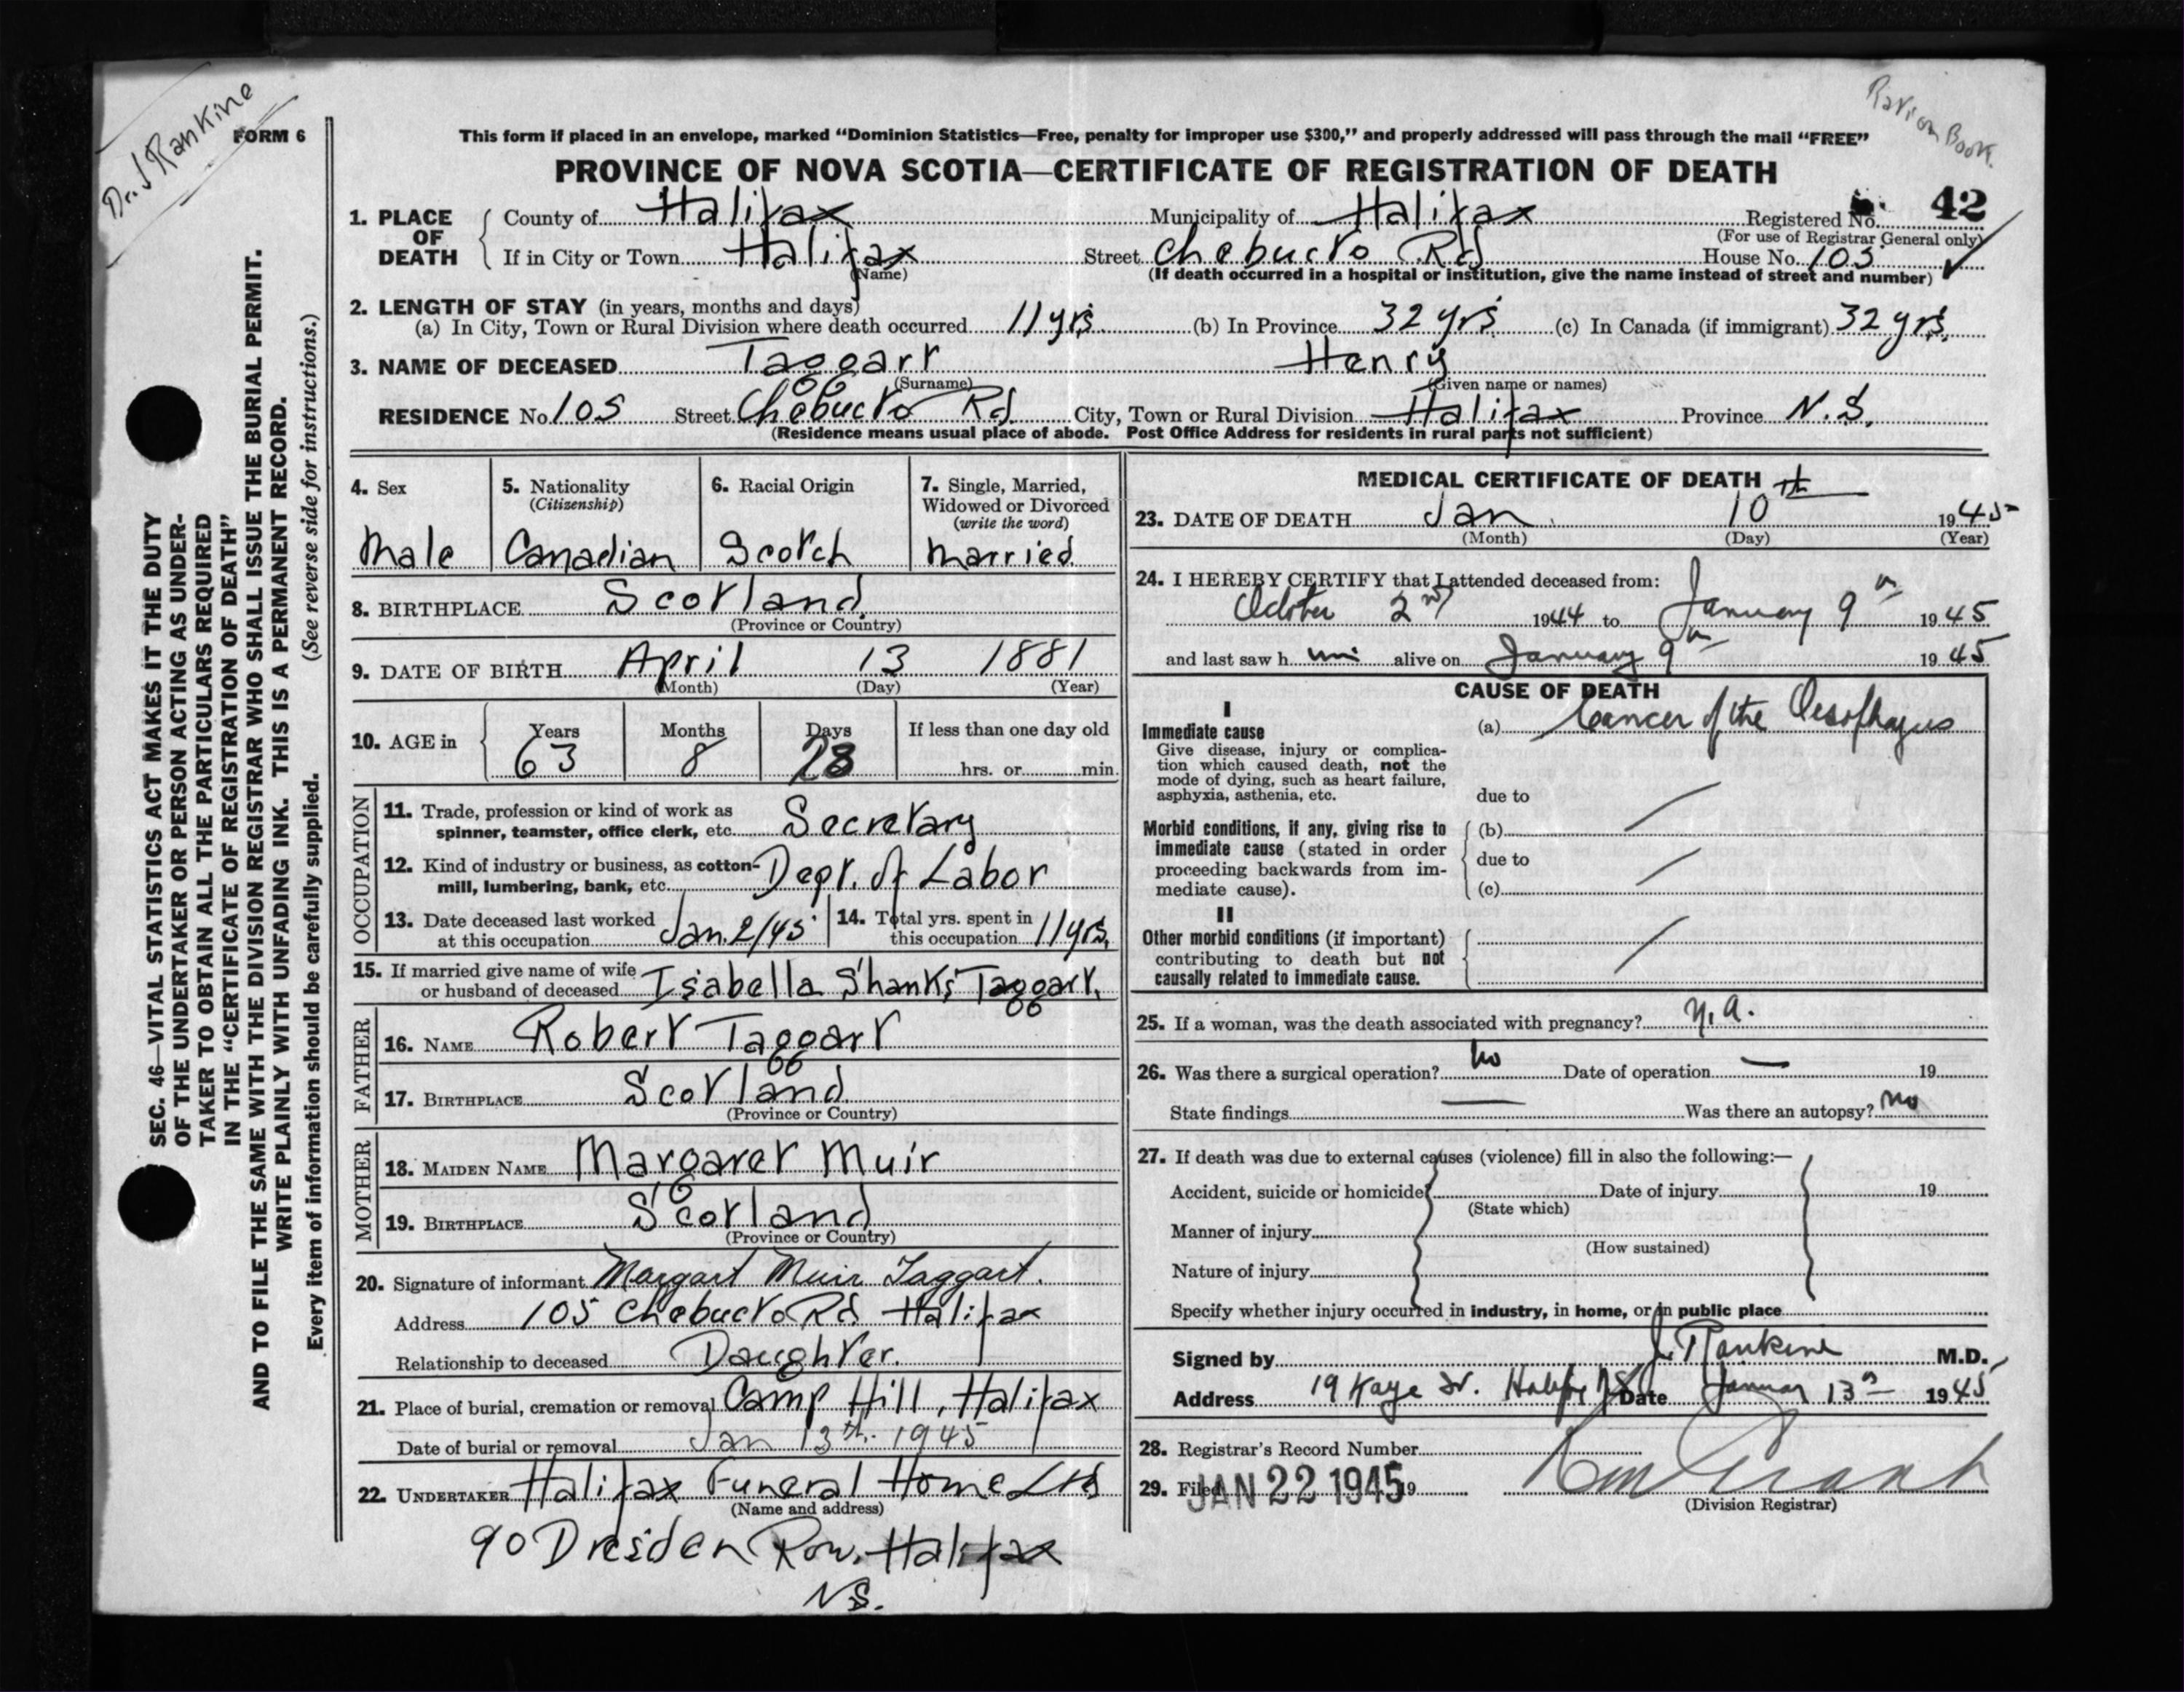 Dr. J Rankine
Ration Book.
FORM 6
This form if placed in an envelope, marked "Dominion Statistics—Free, penalty for improper use $300," and properly addressed will pass through the mail "FREE"
PROVINCE OF NOVA SCOTIA—CERTIFICATE OF REGISTRATION OF DEATH
SEC. 46—VITAL STATISTICS ACT MAKES IT THE DUTY
OF THE UNDERTAKER OR PERSON ACTING AS UNDER-
TAKER TO OBTAIN ALL THE PARTICULARS REQUIRED
IN THE "CERTIFICATE OF REGISTRATION OF DEATH"
AND TO FILE THE SAME WITH THE DIVISION REGISTRAR WHO SHALL ISSUE THE BURIAL PERMIT.
WRITE PLAINLY WITH UNFADING INK. THIS IS A PERMANENT RECORD.
(See reverse side for instructions.)
Every item of information should be carefully supplied.
1. PLACE OF DEATH
County of Halifax Municipality of Halifax Registered No. 42
(For use of Registrar General only)
If in City or Town Halifax Street Chebucto Rd House No. 105
(Name) (If death occurred in a hospital or institution, give the name instead of street and number)
2. LENGTH OF STAY (in years, months and days)
(a) In City, Town or Rural Division where death occurred 11 yrs. (b) In Province 32 yrs (c) In Canada (if immigrant) 32 yrs.
3. NAME OF DECEASED Taggart Henry
(Surname) (Given name or names)
RESIDENCE No 105 Street Chebucto Rd. City, Town or Rural Division Halifax Province N.S.
(Residence means usual place of abode. Post Office Address for residents in rural parts not sufficient)
4. Sex
Male
5. Nationality
(Citizenship)
Canadian
6. Racial Origin
Scotch
7. Single, Married,
Widowed or Divorced
(write the word)
Married
8. BIRTHPLACE Scotland
(Province or Country)
9. DATE OF BIRTH April 13 1881
(Month) (Day) (Year)
10. AGE in Years Months Days If less than one day old
63 8 28 hrs. or min.
OCCUPATION
11. Trade, profession or kind of work as
spinner, teamster, office clerk, etc. Secretary
12. Kind of industry or business, as cotton-
mill, lumbering, bank, etc. Dept. of Labor
13. Date deceased last worked
at this occupation Jan. 2/45
14. Total yrs. spent in
this occupation 11 yrs.
15. If married give name of wife
or husband of deceased Isabella Shanks Taggart.
FATHER
16. NAME Robert Taggart
17. BIRTHPLACE Scotland
(Province or Country)
MOTHER
18. MAIDEN NAME Margaret Muir
19. BIRTHPLACE Scotland
(Province or Country)
20. Signature of informant Margart Muir Taggart.
Address 105 Chebucto Rd Halifax
Relationship to deceased Daughter.
21. Place of burial, cremation or removal Camp Hill, Halifax
Date of burial or removal Jan 13th. 1945
22. UNDERTAKER Halifax Funeral Home Ltd
(Name and address)
90 Dresden Row. Halifax
N.S.
MEDICAL CERTIFICATE OF DEATH
23. DATE OF DEATH Jan. 10th 1945
(Month) (Day) (Year)
24. I HEREBY CERTIFY that I attended deceased from:
October 2nd 1944 to January 9th 1945
and last saw h im alive on January 9th 1945
CAUSE OF DEATH
I
Immediate cause
Give disease, injury or complica-
tion which caused death, not the
mode of dying, such as heart failure,
asphyxia, asthenia, etc.
(a) Cancer of the Oesophagus
due to
Morbid conditions, if any, giving rise to
immediate cause (stated in order
proceeding backwards from im-
mediate cause).
(b)
due to
(c)
II
Other morbid conditions (if important)
contributing to death but not
causally related to immediate cause.
25. If a woman, was the death associated with pregnancy? N.A.
26. Was there a surgical operation? No Date of operation — 19
State findings — Was there an autopsy? No
27. If death was due to external causes (violence) fill in also the following:—
Accident, suicide or homicide Date of injury 19
(State which)
Manner of injury
(How sustained)
Nature of injury
Specify whether injury occurred in industry, in home, or in public place
Signed by J. Rankine M.D.
Address 19 Kaye St. Halifax NS Date January 13th 1945
28. Registrar's Record Number
29. Filed JAN 22 1945 19
(Division Registrar)